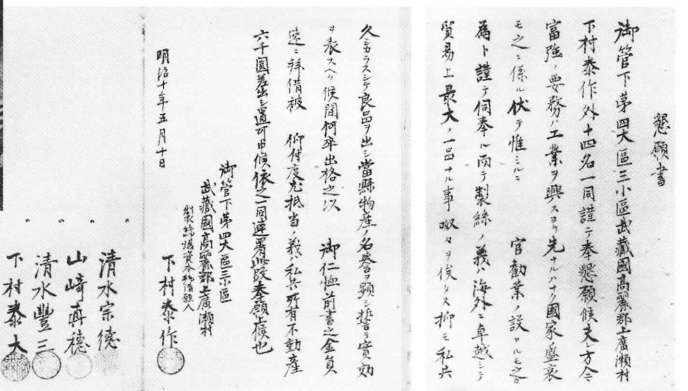 懇願書
御管下第四大區三小區武藏國高麗郡上廣瀬村
下村泰作外十四名一同謹テ奉懇願候夫方今
富強ノ要務ハ工業ヲ興スヨリ先ナルハナク國家盛衰
モ之ニ係ル伏テ惟ミルニ 官勸業ノ設アルモ之
為ト謹テ伺奉ル而テ製絲ノ義ハ海外ニ卓越シテ
貿易上最大ノ一品ナル事 ヲ俟タス抑モ私共
久シカラスシテ良品ヲ出シ當縣物産ノ名譽ヲ顕シ誓テ實効
ヲ表スヘク候間何卒出格之以 御仁恤前書之金員
速ニ拝借被 仰付度尤抵当ノ義ハ私共所有不動産
六千圓差出シ置可申候依之一同連署 奉願上候也
御管下第四大區三小區
武藏國高麗郡上廣瀬村
製絲場資本拝借願人
明治十年五月十日
下村泰作
清水宗徳
山﨑 徳
清水豊三
下村泰